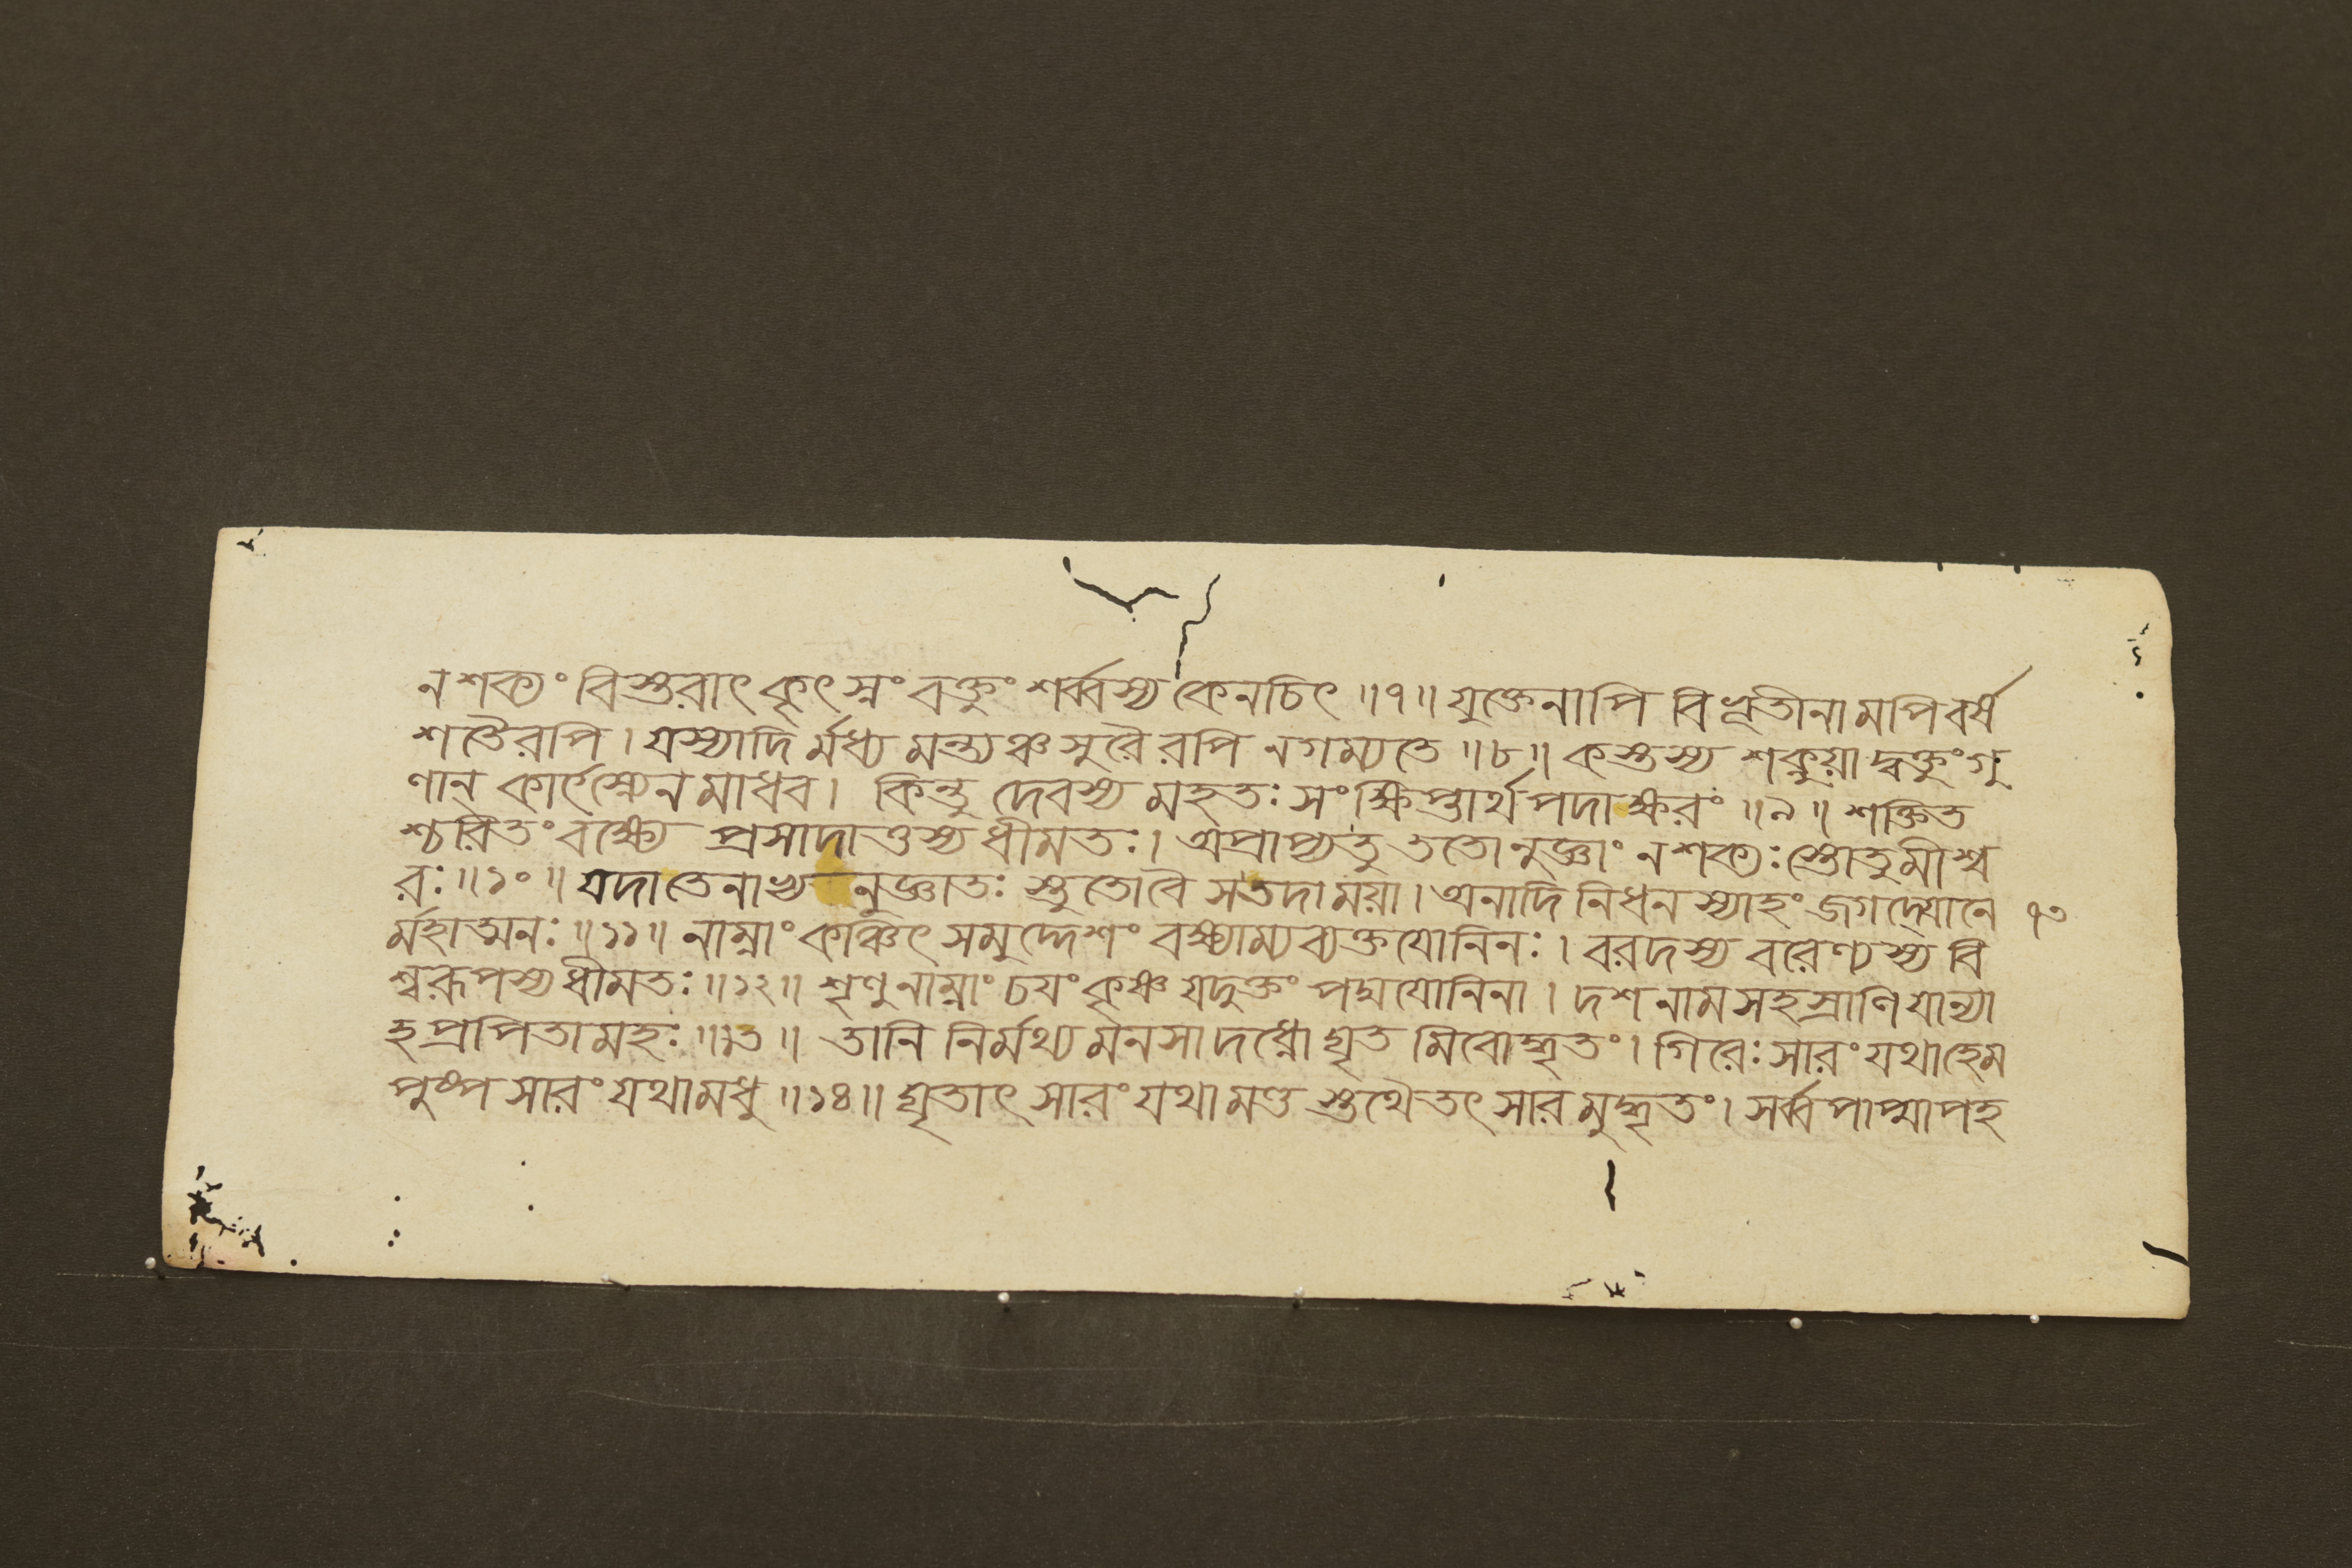 ন শক্যং বিস্তরাৎ কৃৎস্নং বক্তুং শর্ব্বস্য কেনচিৎ ॥৭॥ যুক্তেনাপি বিভূতীনামপি বর্ষ
শতৈরপি । যস্যাদির্মধ্যমন্ত্যঞ্চ সুরৈরপি ন গম্যতে ॥৮॥ কস্তস্য শক্নুয়াদ্বক্তুং গু
ণান্ কার্ৎস্নেন মাধব । কিন্তু দেবস্য মহতঃ সংক্ষিপ্তার্থপদাক্ষরং ॥৯॥ শক্তিত
শ্চরিতং বক্ষ্যে প্রসাদাত্তস্য ধীমতঃ । অপ্রাপ্যতু ততোনুজ্ঞাং ন শক্যঃ স্তোতুমীশ্ব
রঃ ॥১০॥ যদা তেনাভ্যনুজ্ঞাতঃ স্তুতো বৈ স তদা ময়া । অনাদিনিধনস্যাহং জগদ্যোনে ৭৩
র্মহাত্মনঃ ॥১১॥ নাম্নাং কঞ্চিৎ সমুদ্দেশং বক্ষ্যাম্যব্যক্তযোনিনঃ । বরদস্য বরেণ্যস্য বি
শ্বরূপস্য ধীমতঃ ॥১২॥ শৃণু নাম্নাং চয়ং কৃষ্ণ যদুক্তং পদ্মযোনিনা । দশনামসহস্রাণি যান্যা
হ প্রপিতামহঃ ॥১৩॥ তানি নির্মথ্য মনসা দধ্নো ঘৃতমিবোদ্ধৃতং । গিরেঃ সারং যথা হেম
পুষ্পসারং যথা মধু ॥১৪॥ ঘৃতাৎ সারং যথা মণ্ডস্তথৈতৎ সারমুদ্ধৃতং । সর্ব্বপাপ্মাপহ